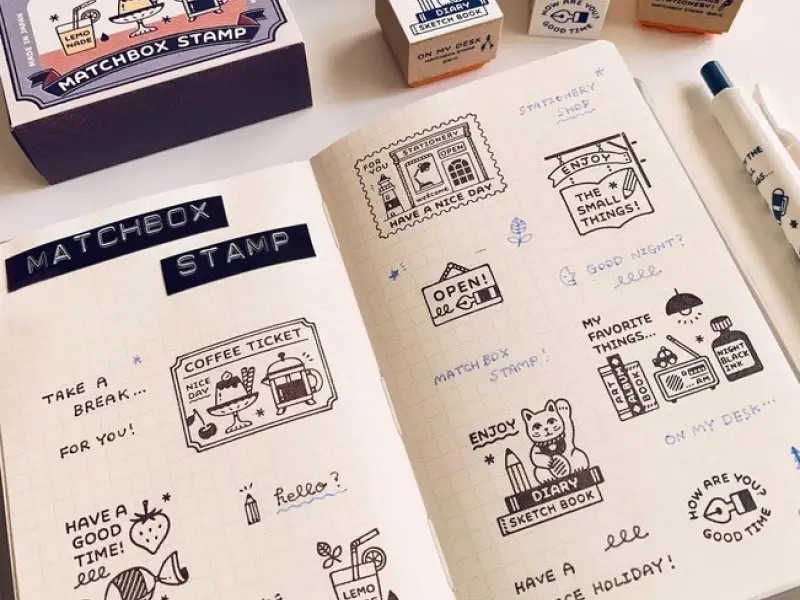 MADE IN JAPAN
LEMO
NADE
MATCHBOX STAMP
DIARY
SKETCH BOOK
ON MY DESK
MATCHBOX STAMP
HOW ARE YOU?
GOOD TIME
STATIONERY!
MATCHBOX STAMP
MATCHBOX
STAMP
TAKE A
BREAK...
FOR YOU!
COFFEE TICKET
NICE
DAY
HAVE A
GOOD
TIME!
hello?
LEMO
NADE
STATIONERY
SHOP
FOR
YOU
STATIONERY
OPEN
Welcome
HAVE A NICE DAY
ENJOY
THE
SMALL
THINGS!
OPEN!
GOOD NIGHT?
MATCHBOX
STAMP!
MY
FAVORITE
THINGS...
ART
ALBUM
BOOK
AM
NIGHT
BLACK
INK
ON MY DESK...
ENJOY
DIARY
SKETCH BOOK
HOW ARE YOU?
GOOD TIME
HAVE A
HOLIDAY!
THE